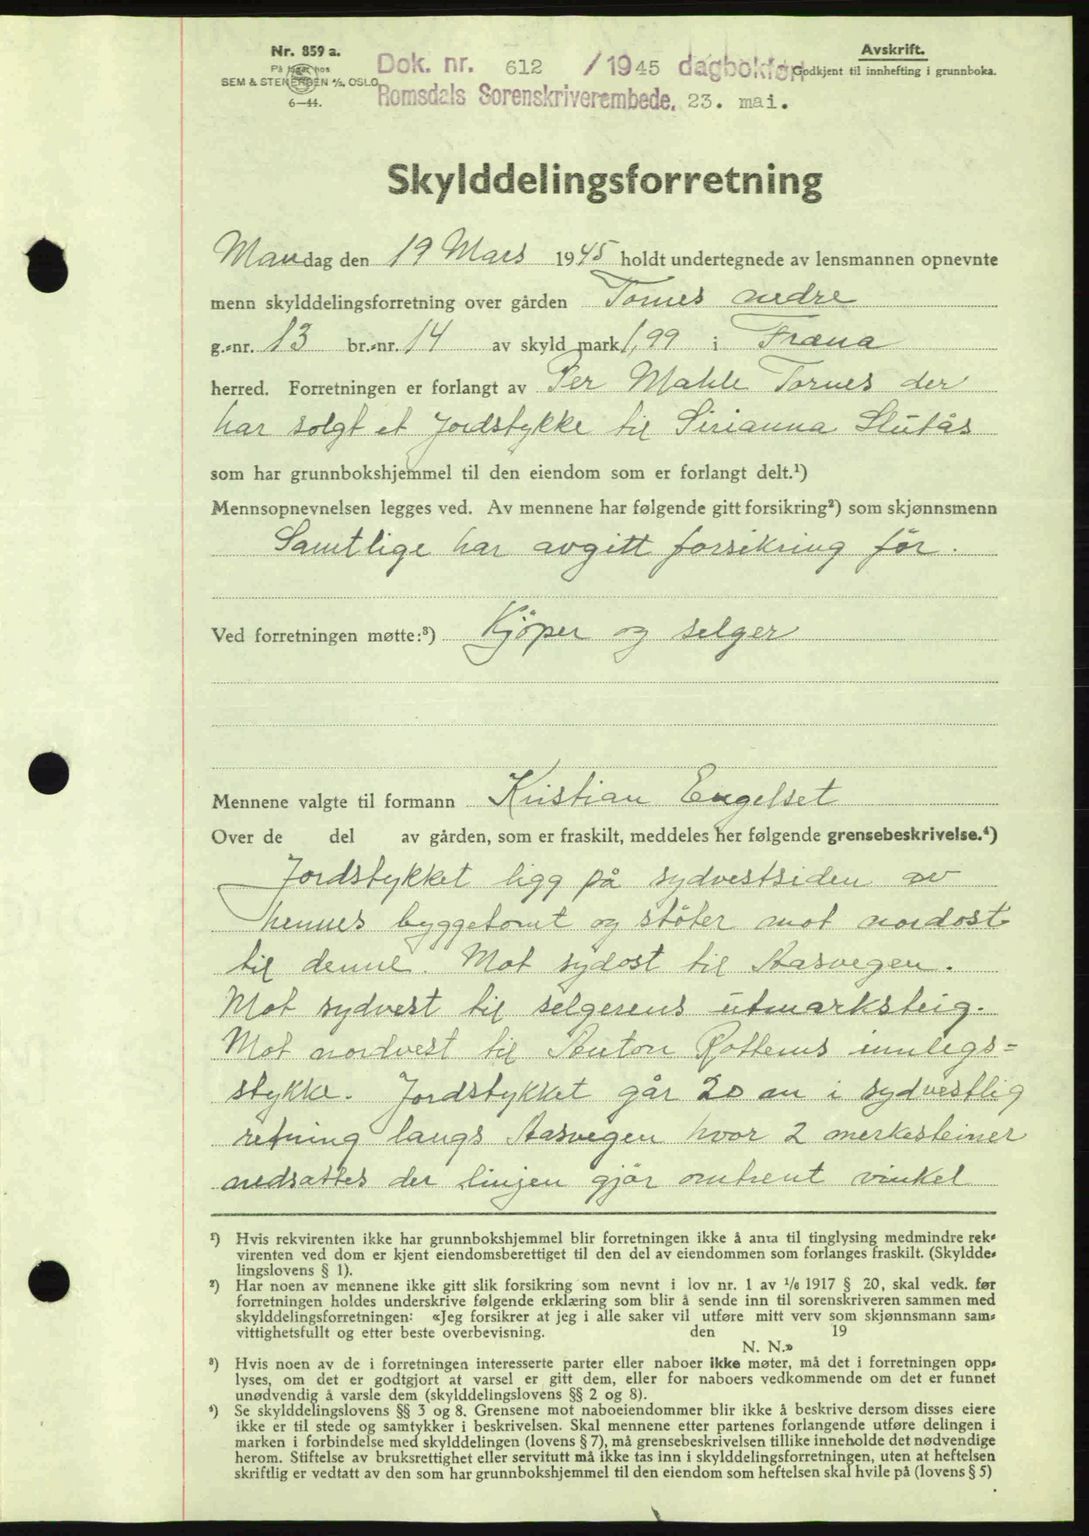 Nr. 859 a.
På lager hos
SEM & STENERSEN A/S, OSLO
6—44.
Dok. nr. 612 /1945 dagbokført
Romsdals Sorenskriverembede, 23. mai.
Avskrift.
Godkjent til innhefting i grunnboka.
Skylddelingsforretning
Mandag den 19 Mars 1945 holdt undertegnede av lensmannen opnevnte
menn skylddelingsforretning over gården Tornes nedre
g.-nr. 13 br.-nr. 14 av skyld mark 1,99 i Fræna
herred. Forretningen er forlangt av Per Mahle Tornes der
har solgt et Jordstykke til Sirianna Slutås
som har grunnbokshjemmel til den eiendom som er forlangt delt.¹)
Mennsopnevnelsen legges ved. Av mennene har følgende gitt forsikring²) som skjønnsmenn
Samtlige har avgitt forsikring før.
Ved forretningen møtte:³) Kjöper og selger
Mennene valgte til formann Kristian Engelset
Over de del av gården, som er fraskilt, meddeles her følgende grensebeskrivelse.⁴)
Jordstykket ligg på sydvestsiden av
hennes byggetomt og støter mot nordost
til denne. Mot sydost til Aasvegen.
Mot sydvest til selgerens utmarksteig.
Mot nordvest til Anton Rottems innlegs=
stykke. Jordstykket går 20 m i sydvestlig
retning langs Aasvegen hvor 2 merkesteiner
nedsattes der linjen gjör omtrent vinkel
¹) Hvis rekvirenten ikke har grunnbokshjemmel blir forretningen ikke å anta til tinglysing medmindre rek-
virenten ved dom er kjent eiendomsberettiget til den del av eiendommen som forlanges fraskilt. (Skyldde-
lingslovens § 1).
²) Har noen av mennene ikke gitt slik forsikring som nevnt i lov nr. 1 av ¹/₆ 1917 § 20, skal vedk. før
forretningen holdes underskrive følgende erklæring som blir å sende inn til sorenskriveren sammen med
skylddelingsforretningen: «Jeg forsikrer at jeg i alle saker vil utføre mitt verv som skjønnsmann sam-
vittighetsfullt og etter beste overbevisning. den 19
N. N.»
³) Hvis noen av de i forretningen interesserte parter eller naboer ikke møter, må det i forretningen opp-
lyses, om det er godtgjort at varsel er gitt dem, eller for naboers vedkommende om det er funnet
unødvendig å varsle dem (skylddelingslovens §§ 2 og 8).
⁴) Se skylddelingslovens §§ 3 og 8. Grensene mot naboeiendommer blir ikke å beskrive dersom disses eiere
ikke er til stede og samtykker i beskrivelsen. Skal mennene etter partenes forlangende utføre delingen i
marken i forbindelse med skylddelingen (lovens § 7), må grensebeskrivelsen tillike inneholde det nødvendige
herom. Stiftelse av bruksrettighet eller servitutt må ikke tas inn i skylddelingsforretningen, uten at heftelsen
skriftlig er vedtatt av den som har grunnbokshjemmel til den eiendom som heftelsen skal hvile på (lovens § 5)